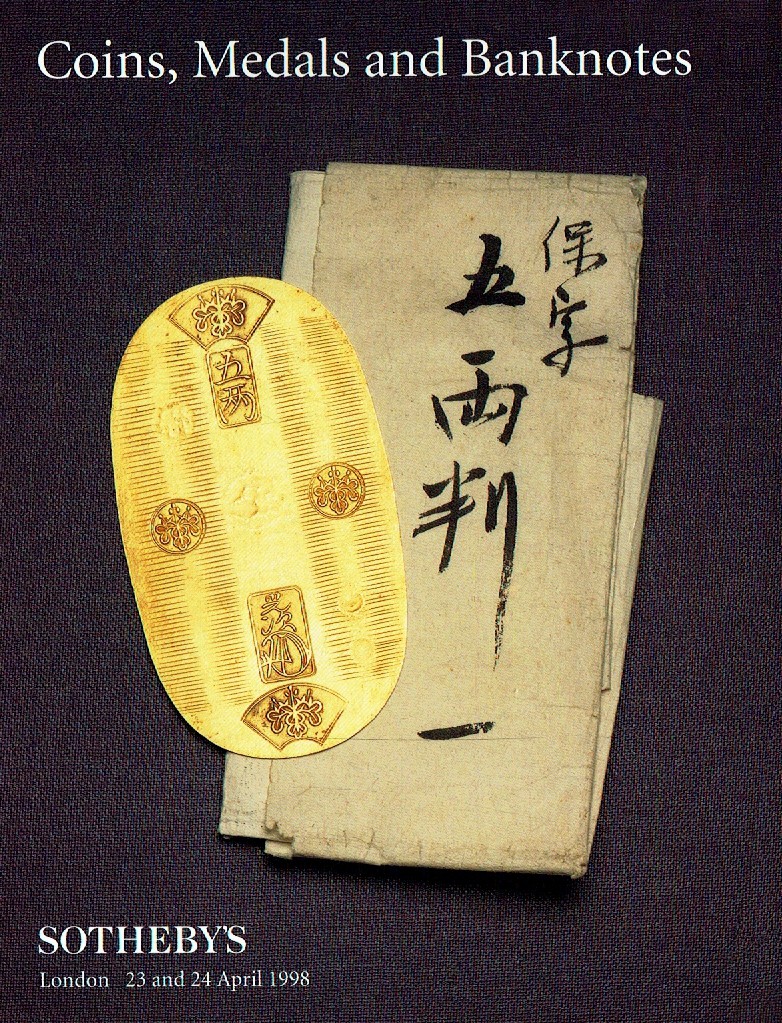 Coins, Medals and Banknotes
保字
五両判
一
五両
SOTHEBY'S
London 23 and 24 April 1998